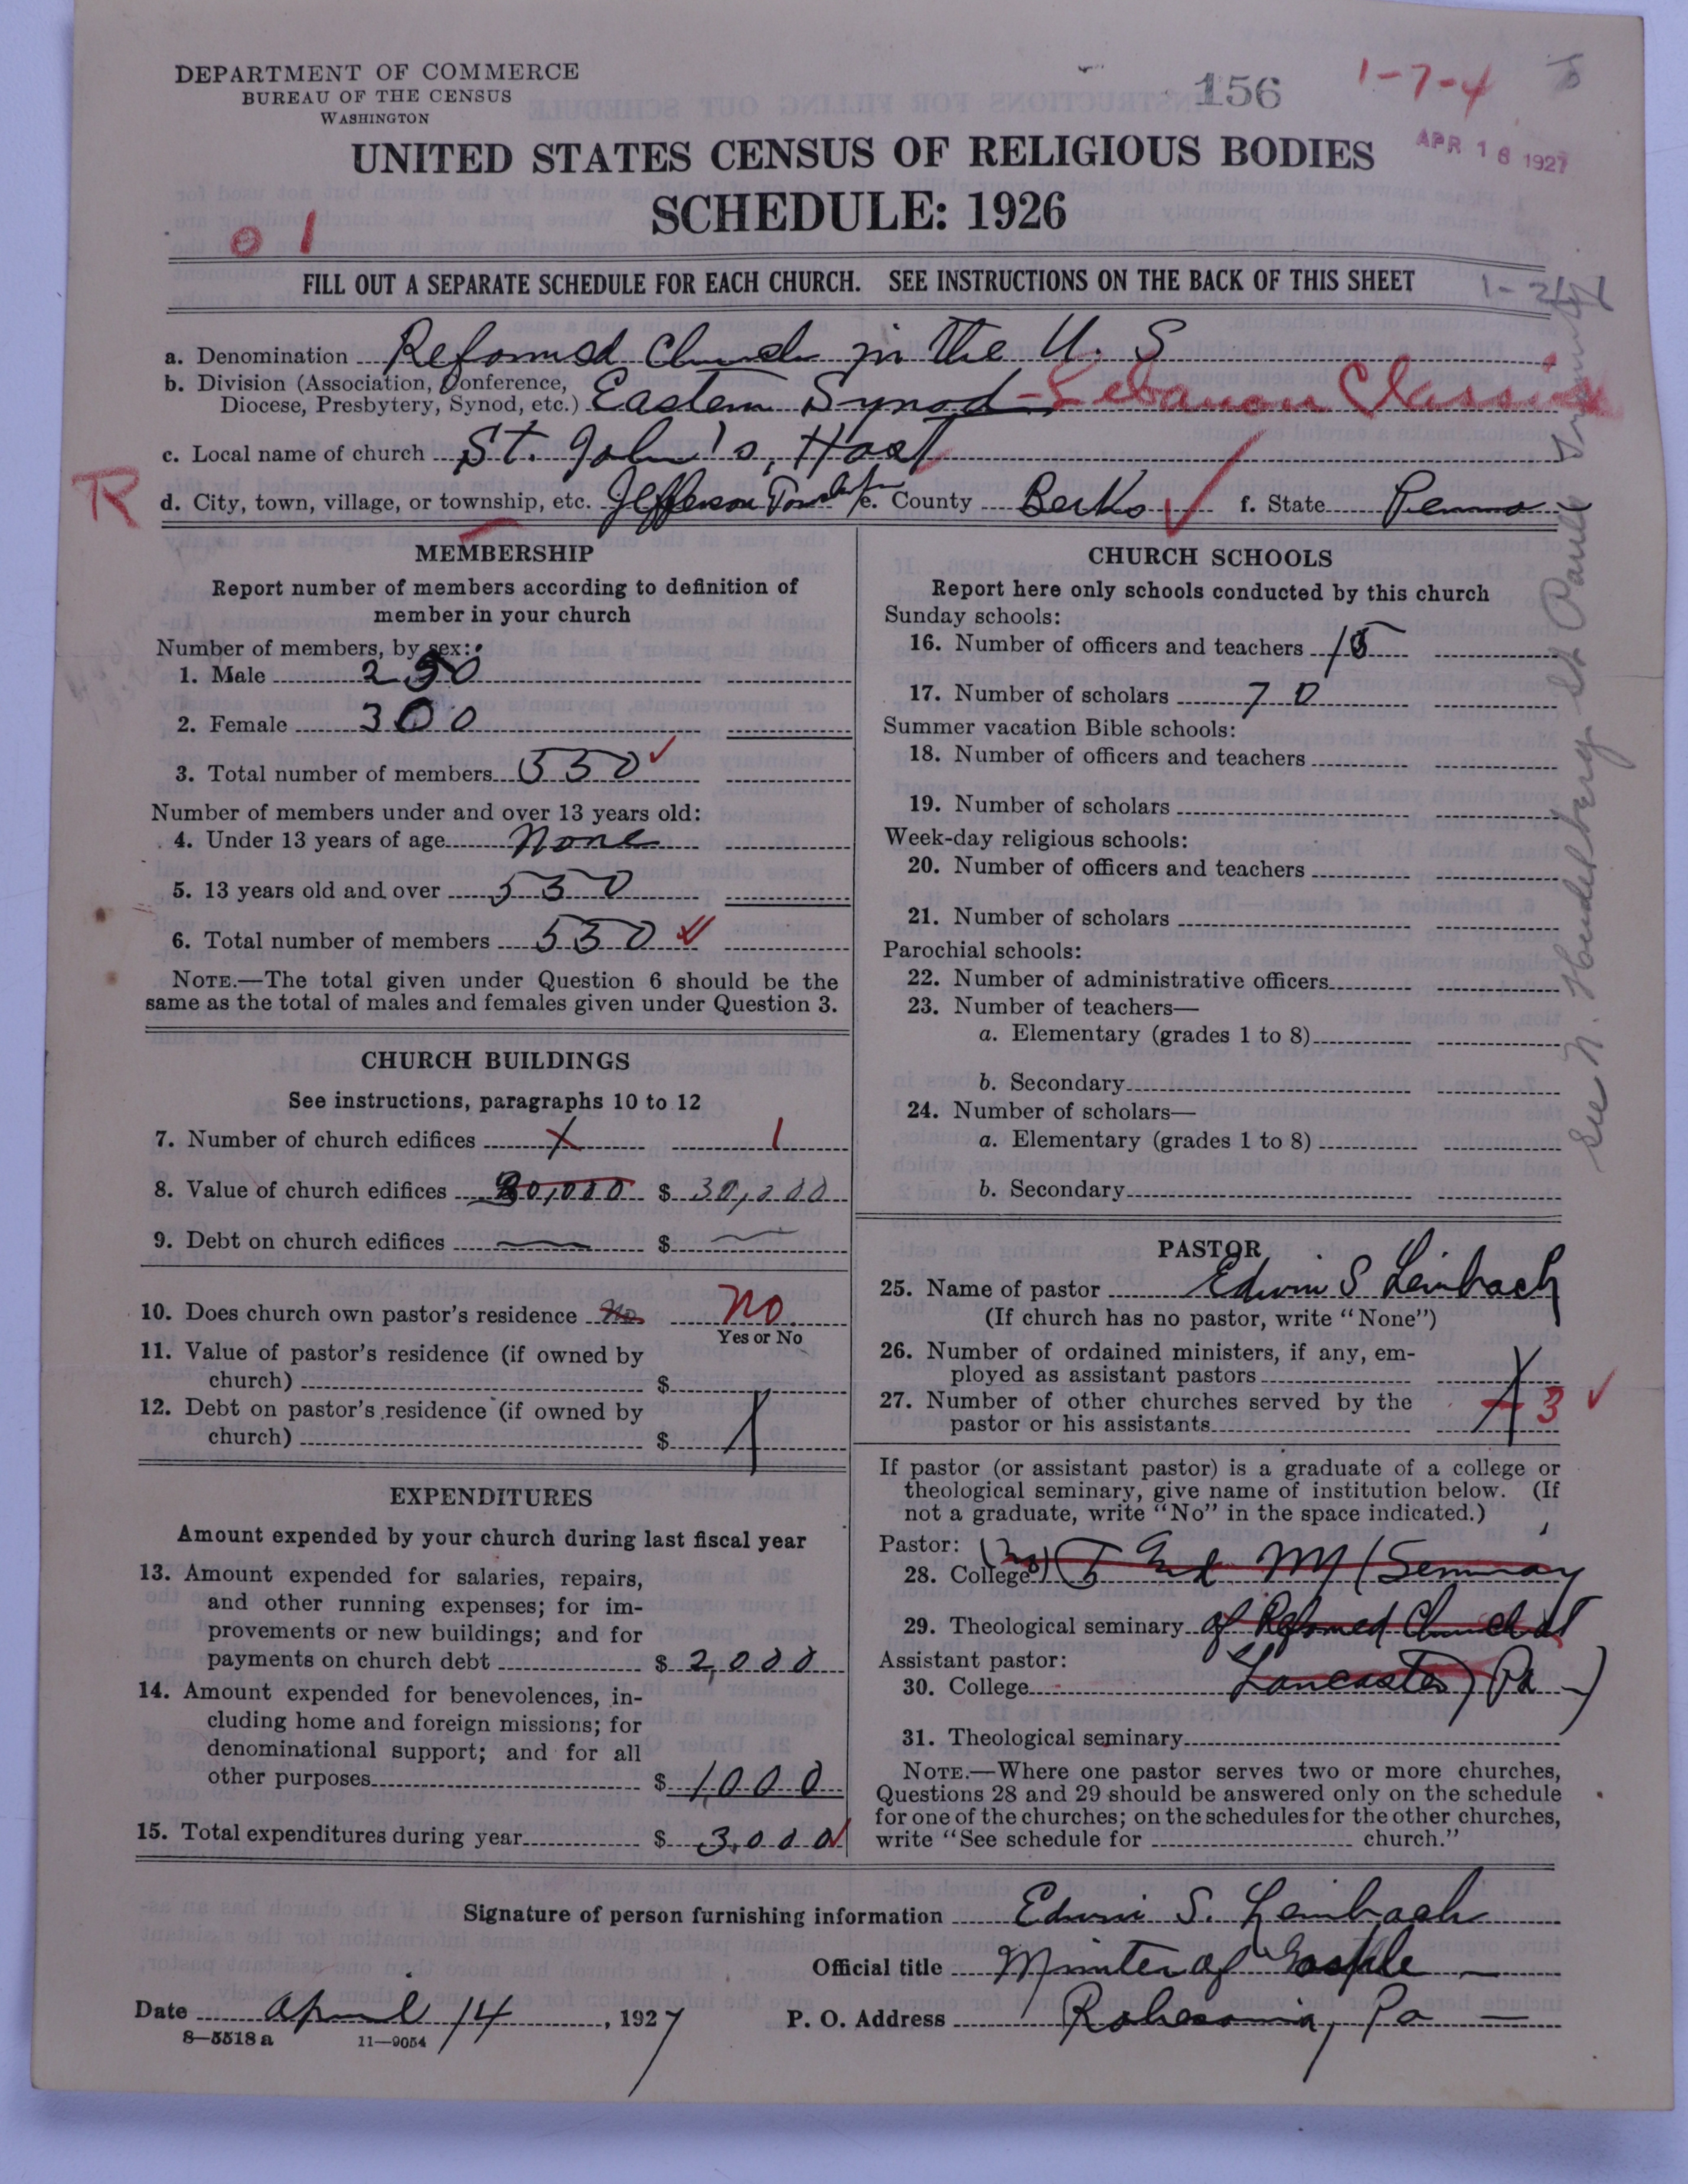 DEPARTMENT OF COMMERCE
BUREAU OF THE CENSUS
WASHINGTON
156
1-7-4
APR 16 1927
UNITED STATES CENSUS OF RELIGIOUS BODIES
SCHEDULE: 1926
0 1
FILL OUT A SEPARATE SCHEDULE FOR EACH CHURCH. SEE INSTRUCTIONS ON THE BACK OF THIS SHEET
a. Denomination Reformed Church in the U. S
b. Division (Association, Conference,
Diocese, Presbytery, Synod, etc.) Eastern Synod - Lebanon Classis
c. Local name of church St. John's, Host
R
d. City, town, village, or township, etc. Jefferson Township e. County Berks f. State Penna
MEMBERSHIP
Report number of members according to definition of
member in your church
Number of members, by sex:
1. Male 230
2. Female 300
3. Total number of members 530
Number of members under and over 13 years old:
4. Under 13 years of age None
5. 13 years old and over 530
6. Total number of members 530
NOTE.—The total given under Question 6 should be the
same as the total of males and females given under Question 3.
CHURCH BUILDINGS
See instructions, paragraphs 10 to 12
7. Number of church edifices 1
8. Value of church edifices 30,000 $ 30,000
9. Debt on church edifices $
10. Does church own pastor's residence No No
Yes or No
11. Value of pastor's residence (if owned by
church) $
12. Debt on pastor's residence (if owned by
church) $
EXPENDITURES
Amount expended by your church during last fiscal year
13. Amount expended for salaries, repairs,
and other running expenses; for im-
provements or new buildings; and for
payments on church debt $ 2,000
14. Amount expended for benevolences, in-
cluding home and foreign missions; for
denominational support; and for all
other purposes $ 1,000
15. Total expenditures during year $ 3,000
CHURCH SCHOOLS
Report here only schools conducted by this church
Sunday schools:
16. Number of officers and teachers 15
17. Number of scholars 70
Summer vacation Bible schools:
18. Number of officers and teachers
19. Number of scholars
Week-day religious schools:
20. Number of officers and teachers
21. Number of scholars
Parochial schools:
22. Number of administrative officers
23. Number of teachers—
a. Elementary (grades 1 to 8)
b. Secondary
24. Number of scholars—
a. Elementary (grades 1 to 8)
b. Secondary
PASTOR
25. Name of pastor Edwin S Leinbach
(If church has no pastor, write "None")
26. Number of ordained ministers, if any, em-
ployed as assistant pastors
27. Number of other churches served by the
pastor or his assistants 3
If pastor (or assistant pastor) is a graduate of a college or
theological seminary, give name of institution below. (If
not a graduate, write "No" in the space indicated.)
Pastor:
28. College (No) F and M (Seminary
29. Theological seminary of Reformed Church at
Assistant pastor:
30. College Lancaster, Pa)
31. Theological seminary
NOTE.—Where one pastor serves two or more churches,
Questions 28 and 29 should be answered only on the schedule
for one of the churches; on the schedules for the other churches,
write "See schedule for church."
See N. Heidelberg St Pauls Trinity
Signature of person furnishing information Edwin S. Leinbach
Official title Minister of Gosple
Date April 14, 1927 P. O. Address Robesonia, Pa
8—5518 a 11—9054